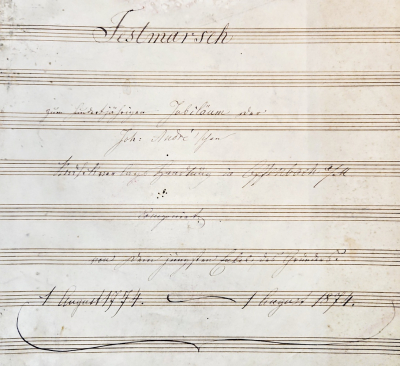 Festmarsch
zum hundertjährigen Jubiläum der
Joh. André'schen
Musikverlags Handlung in Offenbach a/M
componirt
von dem jüngsten Enkel des Gründers.
1 August 1774. — 1 August 1874.